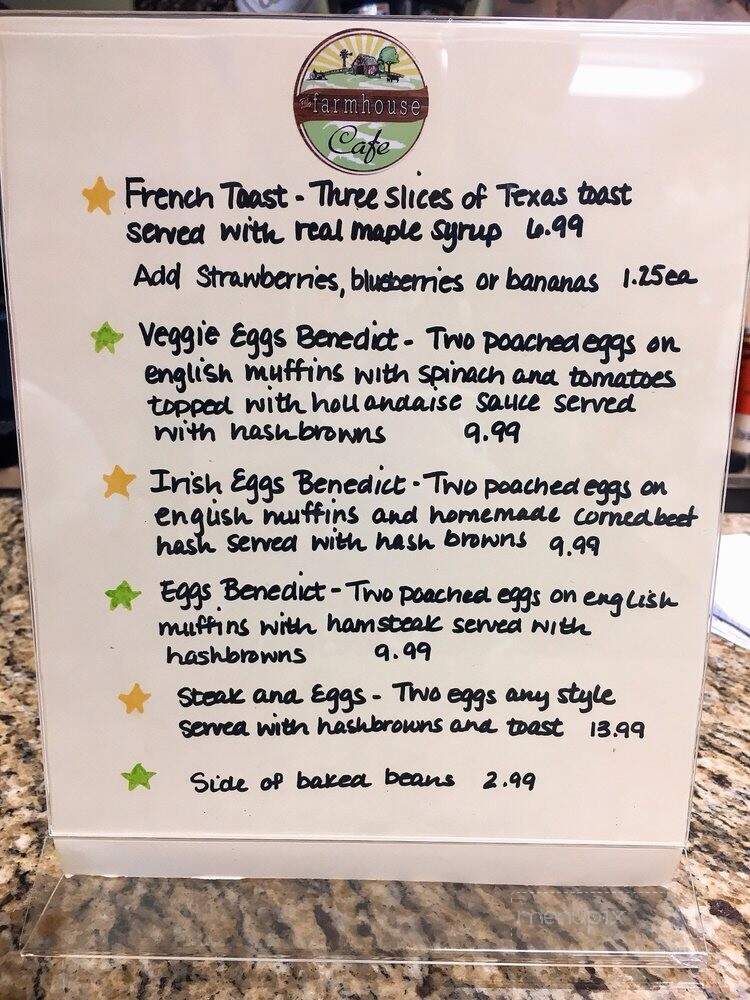 The farmhouse
Cafe
French Toast - Three slices of Texas toast
served with real maple syrup 6.99
Add Strawberries, blueberries or bananas 1.25ea
Veggie Eggs Benedict - Two poached eggs on
english muffins with spinach and tomatoes
topped with hollandaise sauce served
with hashbrowns 9.99
Irish Eggs Benedict - Two poached eggs on
english muffins and homemade corned beef
hash served with hash browns 9.99
Eggs Benedict - Two poached eggs on english
muffins with hamsteak served with
hashbrowns 9.99
Steak and Eggs - Two eggs any style
served with hashbrowns and toast 13.99
Side of baked beans 2.99
menupix